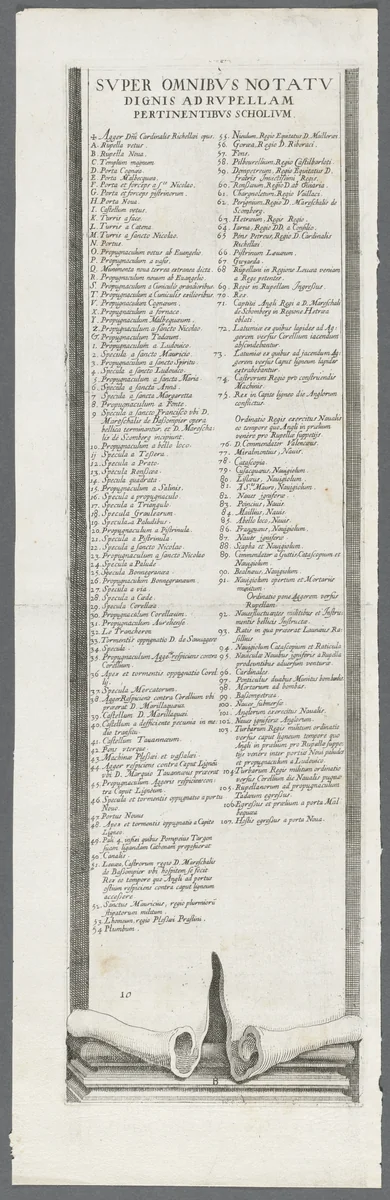 SVPER OMNIBVS NOTATV
DIGNIS AD RVPELLAM
PERTINENTIBVS SCHOLIVM
Agger Dñi Cardinalis Richellai opus.
A. Rupella vetus.
B. Rupella Nova.
C. Templum magnum
D. Porta Cognac
E. Porta Malbecqua.
F. Porta et forceps a S.to Nicolao.
G. Porta et forceps pistrinorum.
H. Porta Nova.
I. Castellum vetus.
K. Turris a face
L. Turris a Catena
M. Turris a sancto Nicolao.
N. Portus.
O. Propugnaculum vetus ab Euangelio
P. Propugnaculum a vase.
Q. Munimenta nova terrea extranea dicta.
R. Propugnaculum novum ab Euangelio.
S. Propugnaculum a Cuniculis grandioribus
T. Propugnaculum a Cuniculis exilioribus
V. Propugnaculum Cognacum.
X. Propugnaculum a fornace
Y. Propugnaculum Malbequanum.
Z. Propugnaculum a sancto Nicolao.
&. Propugnaculum Tadanum.
1. Propugnaculum a Ludovico
2. Specula a sancto Mauricio
3. Propugnaculum a sancto Spiritu
4. Specula a sancto Ludovico.
5. Propugnaculum a sancta Maria
6. Specula a sancta Anna.
7. Specula a sancta Margaretta
8. Propugnaculum a Ponte.
9. Specula a sancto Francisco vbi D.
Mareschalis de Bassompier opera
bellica terminantur. et D. Marescha-
lis de Scomberg incipiunt.
10. Propugnaculum a bello loco.
11. Specula a Tessera.
12. Specula a Prato.
13. Specula Ronsaea.
14. Specula quadrata
15. Propugnaculum a Salinis.
16. Specula a propugnaculo
17. Specula a Triangulo
18. Specula Groulearum
19. Specula a Paludibus.
20. Propugnaculum a Pistrinula.
21. Specula a Pistrinula.
22. Specula a sancto Nicolao
23. Propugnaculum a sancto Nicolao
24. Specula a Palude
25. Specula Bonagranaea.
26. Propugnaculum Bonagranaeum.
27. Specula a via.
28. Specula a Cade.
29. Specula Corellaea
30. Propugnaculum Corellaeum.
31. Propugnaculum Aurelhense
32. Le Trancheron
33. Tormentis oppugnatio D. de Sauuaggere
34. Specula.
35. Propugnaculum Aggeris respiciens contra
Corellum.
36. Apex et tormentis oppugnatio Corel-
li.
37. Specula Mercatorum.
38. Agger Respiciens contra Corellum vbi
praeerat D. Marillaquaeus.
39. Castellum D. Marillaquaei.
40. Castellum a deficiente pecunia in me-
dio transitu.
41. Castellum Tauannaeum.
42. Fons vterque
43. Machinae Plessaei et vassalaei.
44. Agger respiciens contra Caput Ligneū
vbi D. Marquis Tauannaeus praeerat
45. Propugnaculum Aggeris respiciens con-
tra Caput Ligneum.
46. Specula et tormentis oppugnatio a portu
Novo
47. Portus Novus
48. Apex et tormentis oppugnatio a Capite
Ligneo.
49. Pali 4. infixi quibus Pompeius Targon
suam ligandam Cathenam proposuerat
50. Canalis.
51. Louaea Castrorum regis D. Mareschalis
de Bassompier vbi hospitem se fecit
Rex eo tempore quo Angli ad portus
ostium respiciens contra caput ligneum
accessere
52. Sanctus Mauricius, regio plurimorū
stipatorum militum.
53. L'homeum, regio Plessaei Praslini.
54. Plumbum.
55. Nieulum, Regio Equitatus D. Mulleraei
56. Goraea, Regio D. Riberaci.
57. Fons.
58. Pilbourellum, Regio Castelbarloti.
59. Dompetreum, Regio Equitatus D.
fratris Invictissimi Regis.
60. Ronsaeum, Regio D. ab Oliuaria.
61. Charpaelatum, Regio Vaillaci.
62. Perignium, Regio D. Mareschalis de
Scomberg.
63. Hetraeum, Regio Regio
64. Iarna, Regio D.D. a Consilio
65. Pons Petreus, Regio D. Cardinalis
Richellaei
66. Pistrinum Lauaeum.
67. Gueyarda.
68. Rupellani in Regione Louaea veniam
a Rege petentes.
69. Regis in Rupellam Ingressus
70. Rex.
71. Captiui Angli Regi a D. Mareschali
de Schomberg in Regione Hetraea
oblati
72. Latumiae ex quibus lapides ad Ag-
gerem versus Corellum iacendum
abscindebantur.
73. Latumiae ex quibus ad faciendum Ag-
gerem versus Caput ligneum lapides
extrahebantur.
74. Castrorum Regio pro construendis
Machinis
75. Rex in Capite ligneo die Anglorum
conflictus
Ordinatio Regis exercitus Navalis
eo tempore quo Angli in praelium
venere pro Rupellae suppetijs
76. D. Commendator Valencaeus
77. Miralmontius, Nauis.
78. Catascopia.
79. Cusacquaeus, Nauigiolum
80. Lislaeus, Nauigiolum.
81. A S.to Mauro, Nauigiolum.
82. Naues igniferae
83. Poincius, Nauis.
84. Meillius, Nauis.
85. Abello loco, Nauis.
86. Fragueus, Nauigiolum.
87. Naues igniferae
88. Scapha et Nauigiolum
89. Commendator a fructis Catascopium et
Nauigiolum
90. Boelnaeus, Nauigiolum.
91. Nauigiolum opertum et Mortarijs
munitum
Ordinatio pone Aggerem versus
Rupellam.
92. Naves fluctuantes militibus et Instru-
mentis bellicis Instructae.
93. Ratis in qua praeerat Launaeus Ra-
sillius
94. Nauigiolum Catascopium et Raticula
95. Naviculae Nauibus igniferis a Rupella
prodeuntibus aduersum venturae
96. Cardinales
97. Ponticulus duobus Munitus bombardis
98. Mortarium ad bombas.
99. Bassimpetraea.
100. Naues submersae
101. Anglorum exercitus Naualis.
102. Naues igniferae Anglorum
103. Turbarum Regis militum ordinatio
versus caput ligneum tempore quo
Angli in praelium pro Rupellae suppe-
tijs venere inter portus Novi paludes
et propugnaculum a Ludovico
104. Turbarum Regis militum ordinatio
versus Corellum die Naualis pugnae
105. Rupellanorum ad propugnaculum
Tadanum egressus.
106. Egressus et praelium a porta Mal-
bequaea
107. Hostis egressus a porta Noua.
10
B